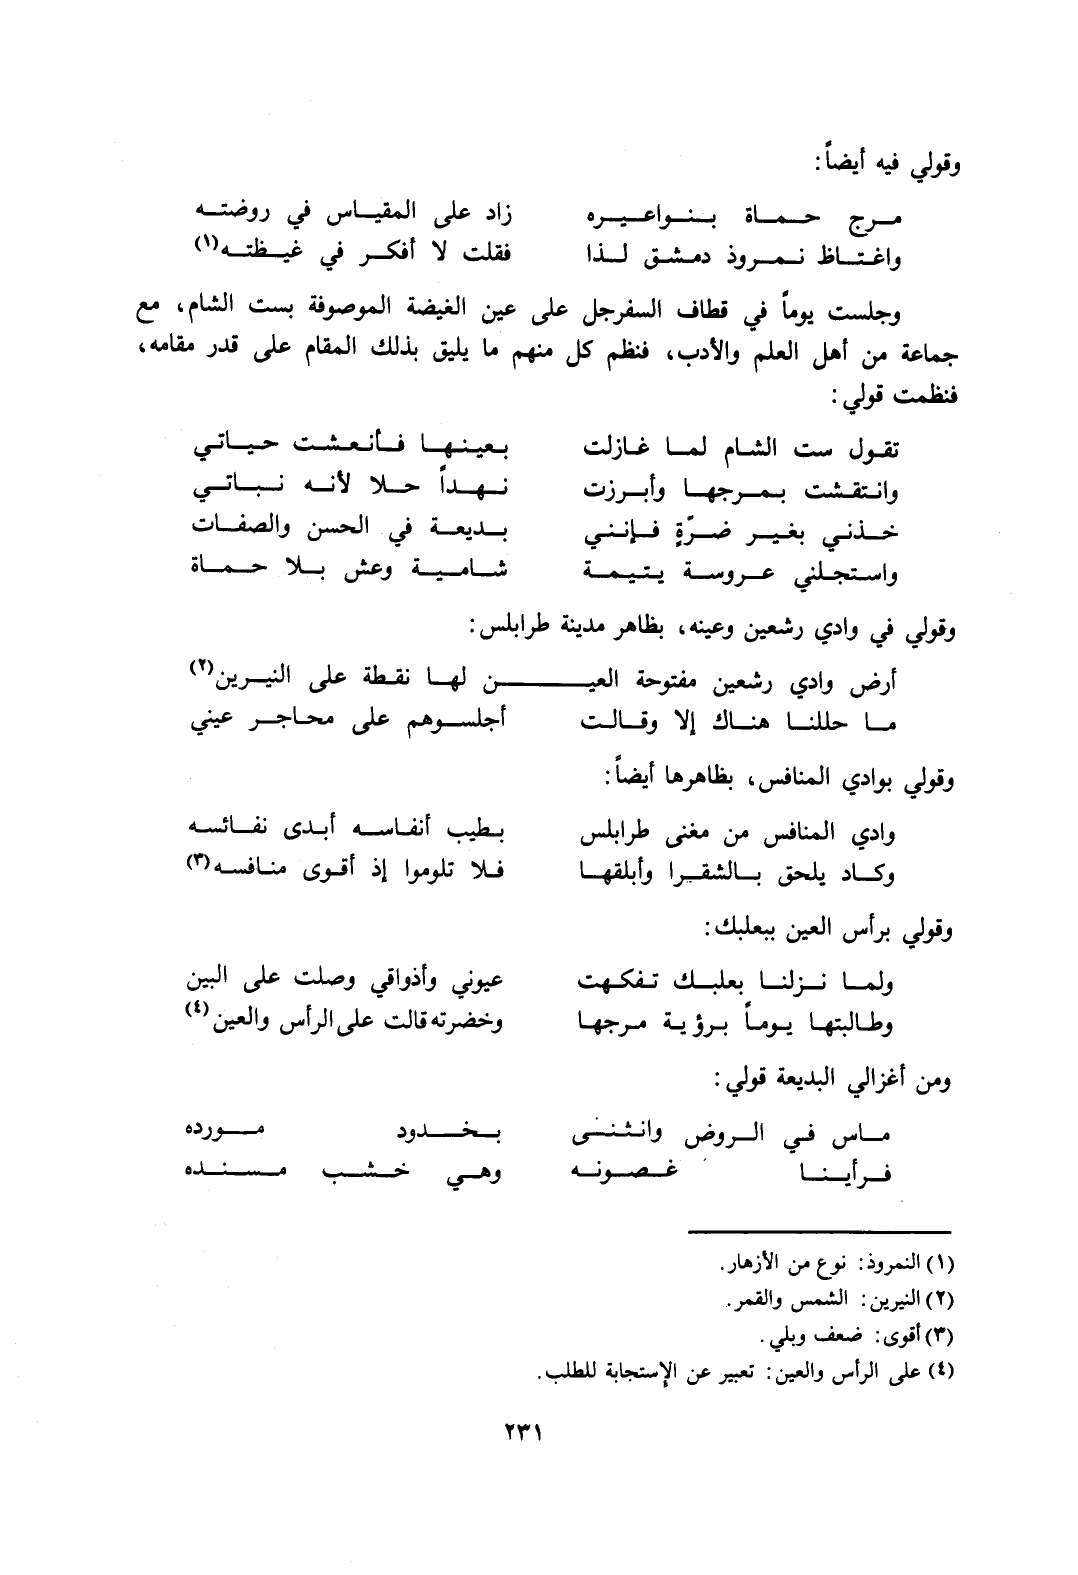 وقولي فيه أيضاً:
مرج حماة بنواعيره زاد على المقياس في روضته
واغتاظ نمروذ دمشق لذا فقلت لا أفكر في غيظته(١)
وجلست يوماً في قطاف السفرجل على عين الغيضة الموصوفة بست الشام، مع
جماعة من أهل العلم والأدب، فنظم كل منهم ما يليق بذلك المقام على قدر مقامه،
فنظمت قولي:
تقول ست الشام لما غازلت بعينها فأنعشت حياتي
وانتقشت بمرجها وأبرزت نهداً حلا لأنه نباتي
خذني بغير ضرّةٍ فإنني بديعة في الحسن والصفات
واستجلني عروسة يتيمة شامية وعش بلا حماة
وقولي في وادي رشعين وعينه، بظاهر مدينة طرابلس:
أرض وادي رشعين مفتوحة العيـــن لها نقطة على النيرين(٢)
ما حللنا هناك إلا وقالت أجلسوهم على محاجر عيني
وقولي بوادي المنافس، بظاهرها أيضاً:
وادي المنافس من مغنى طرابلس بطيب أنفاسه أبدى نفائسه
وكاد يلحق بالشقرا وأبلقها فلا تلوموا إذ أقوى منافسه(٣)
وقولي برأس العين ببعلبك:
ولما نزلنا بعلبك تفكهت عيوني وأذواقي وصلت على البين
وطالبتها يوماً برؤية مرجها وخضرته قالت على الرأس والعين(٤)
ومن أغزالي البديعة قولي:
ماس في الروض وانثنى بخدود مورده
فرأينا غصونه وهي خشب مسنده
(١) النمروذ: نوع من الأزهار.
(٢) النيرين: الشمس والقمر.
(٣) أقوى: ضعف وبلي.
(٤) على الرأس والعين: تعبير عن الإستجابة للطلب.
٢٣١